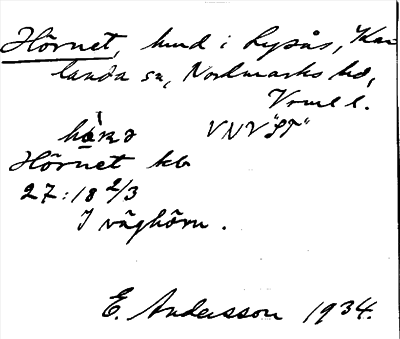 Hörnet, hmd i Lysås, Kar-
landa sn, Nordmarks hd,
Vrml l.
VNV "ST"
Hörnet kb
27:18 2/3
I väghörn.
E. Andersson 1934.